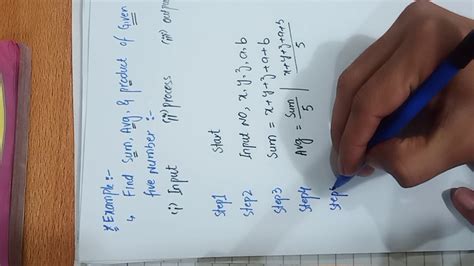 * Example :-
↳ Find Sum, Avg, & product of Given
five Number :-
(i) Input (ii) process (iii) output
Step1 Start
Step2 Input NO, x, y, z, a, b
Step3 Sum = x+y+z+a+b
Step4 Avg = Sum/5 | x+y+z+a+b/5
Step